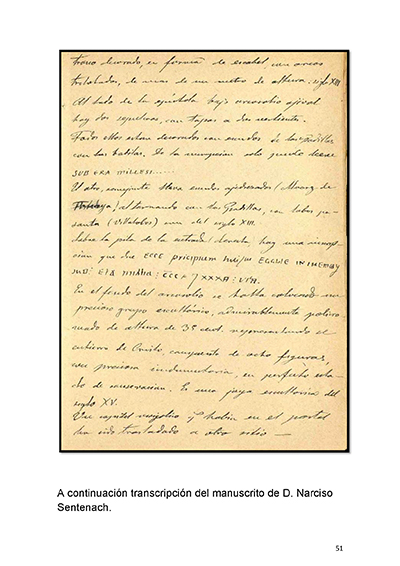 Trono decorado, en forma de escabel, con arcos
trilobados, de mas de un metro de altura: siglo XIII
Al lado de la epístola bajo arcosolio ojival
hay dos sepulcros, con tapas a dos vertientes.
Todos ellos estan decorados con escudos de los Padillas
con las batilas. De la inscripcion solo puede leerse
SUB ERA MILLESI.....
El otro, compuesto lleva escudos ajedrezados (Alvarez de
alternando con los Padillas, con lobos pa-
santes (Villalobos) son del siglo XIII.
Sobre la pila de la entrada derecha, hay una inscrip-
cion que dice
En el fondo del arcosolio se habia colocado un
precioso grupo escultórico, admirablemente policro-
mado de altura de 35 cent. representando el
entierro de Cristo, compuesto de ocho figuras,
con preciosa indumentaria, en perfecto esta-
do de conservacion. Es una joya escultórica del
siglo XV.
Un capitel que habia en el portal
ha sido trasladado a otro sitio —
A continuación transcripción del manuscrito de D. Narciso
Sentenach.
51